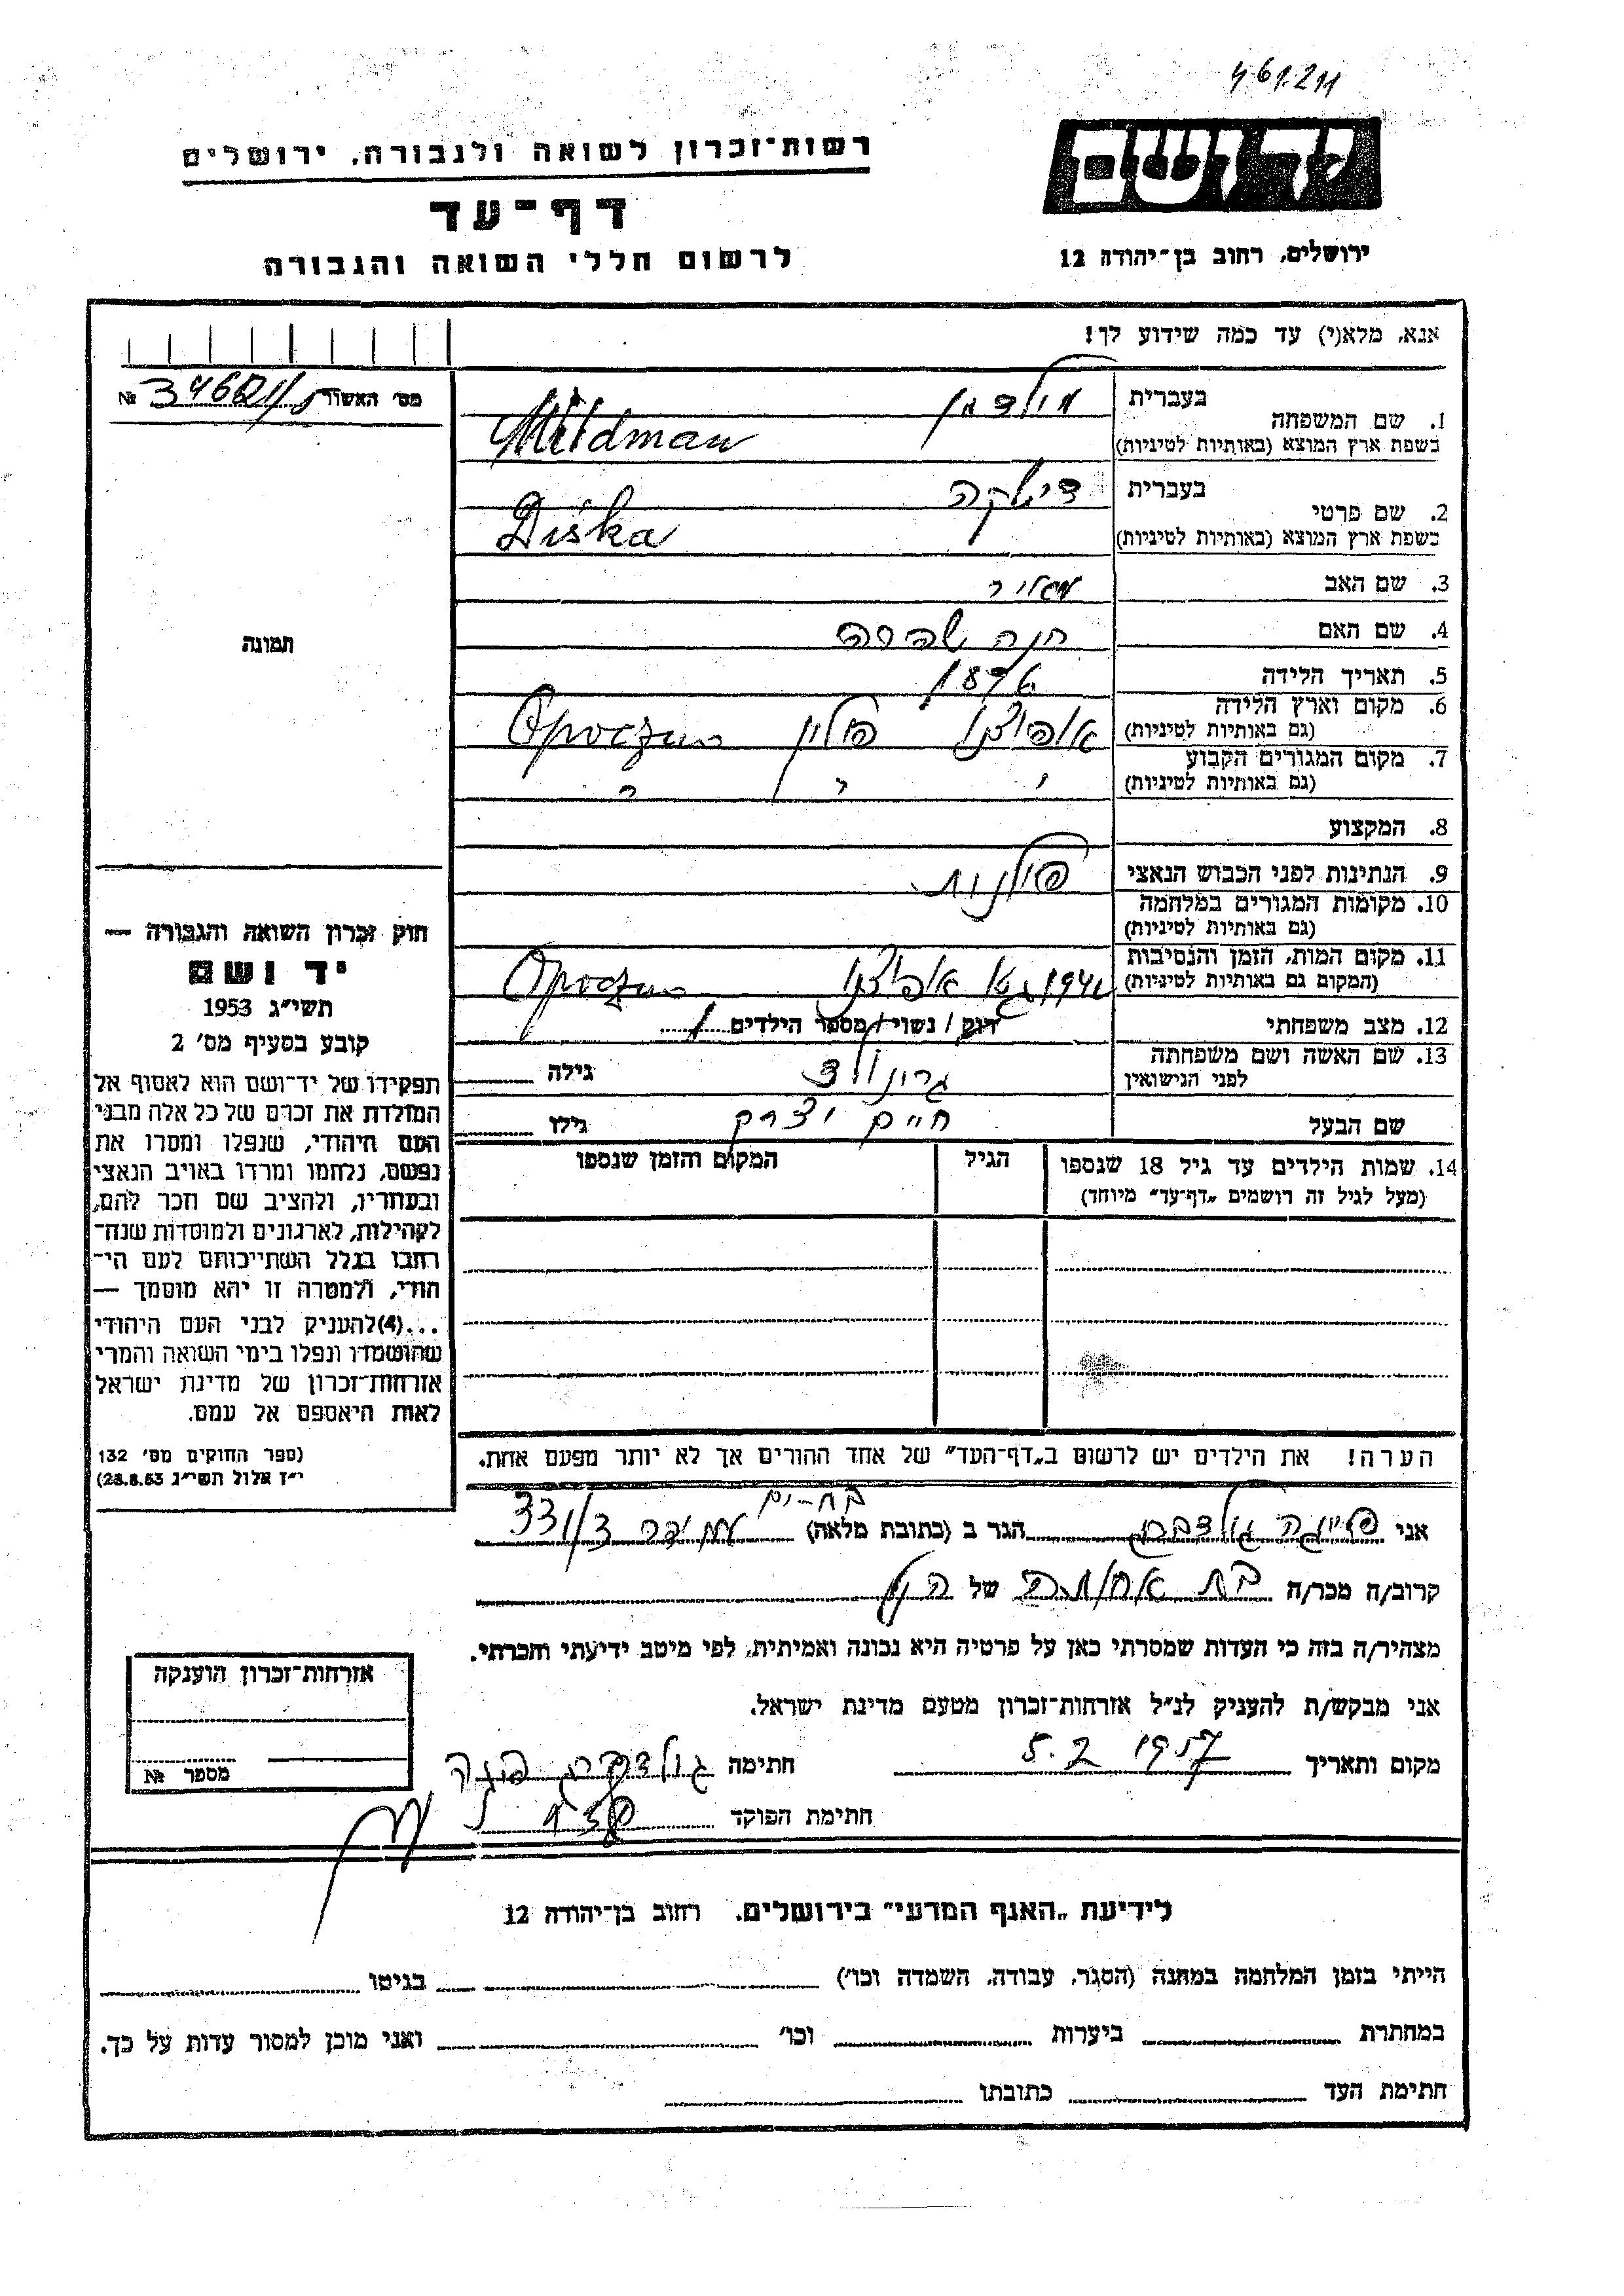 461.211
יד ושם
רשות־זכרון לשואה ולגבורה, ירושלים
דף־עד
לרשום חללי השואה והגבורה
ירושלים, רחוב בן־יהודה 12
אנא, מלא(י) עד כמה שידוע לך!
מס׳ האשור №
1. שם המשפחה
בעברית מילדמן
בשפת ארץ המוצא (באותיות לטיניות) Mildman
2. שם פרטי
בעברית דישקה
בשפת ארץ המוצא (באותיות לטיניות) Diśka
3. שם האב מאיר
4. שם האם חנה שרה
5. תאריך הלידה
6. מקום וארץ הלידה
(גם באותיות לטיניות) אופוצנו פולין Opoczno
7. מקום המגורים הקבוע
(גם באותיות לטיניות) " " "
8. המקצוע
9. הנתינות לפני הכבוש הנאצי פולנית
10. מקומות המגורים במלחמה
(גם באותיות לטיניות)
11. מקום המות, הזמן והנסיבות
(המקום גם באותיות לטיניות) גטו אופוצנו Opoczno
12. מצב משפחתי רווק / נשוי / מספר הילדים
13. שם האשה ושם משפחתה
לפני הנישואין גילה
שם הבעל חיים יצחק גילו
14. שמות הילדים עד גיל 18 שנספו הגיל המקום והזמן שנספו
(מעל לגיל זה רושמים „דף־עד״ מיוחד)
תמונה
חוק זכרון השואה והגבורה —
יד ושם
תשי״ג 1953
קובע בסעיף מס׳ 2
תפקידו של יד־ושם הוא לאסוף אל
המולדת את זכרם של כל אלה מבני
העם היהודי, שנפלו ומסרו את
נפשם, נלחמו ומרדו באויב הנאצי
ובעוזריו, ולהציב שם וזכר להם,
לקהילות, לארגונים ולמוסדות שנח־
רבו בגלל השתייכותם לעם הי־
הודי, ולמטרה זו יהא מוסמך —
...(4)להעניק לבני העם היהודי
שהושמדו ונפלו בימי השואה והמרי
אזרחות־זכרון של מדינת ישראל
לאות היאספם אל עמם.
(ספר החוקים מס׳ 132
י״ז אלול תשי״ג 28.8.53)
הערה! את הילדים יש לרשום ב„דף־העד״ של אחד ההורים אך לא יותר מפעם אחת.
אני גולדברג הגר ב (כתובת מלאה)
קרוב/ה מכר/ה בת אחותה של הנ״ל
מצהיר/ה בזה כי העדות שמסרתי כאן על פרטיה היא נכונה ואמיתית, לפי מיטב ידיעתי והכרתי.
אני מבקש/ת להעניק לנ״ל אזרחות־זכרון מטעם מדינת ישראל.
מקום ותאריך 5.2 1957 חתימה גולדברג
חתימת הפוקד
אזרחות־זכרון הוענקה
מספר №
לידיעת „האגף המדעי״ בירושלים, רחוב בן־יהודה 12
הייתי בזמן המלחמה במחנה (הסגר, עבודה, השמדה וכו׳) בגיטו
במחתרת ביערות וכו׳ ואני מוכן למסור עדות על כך.
חתימת העד כתובתו